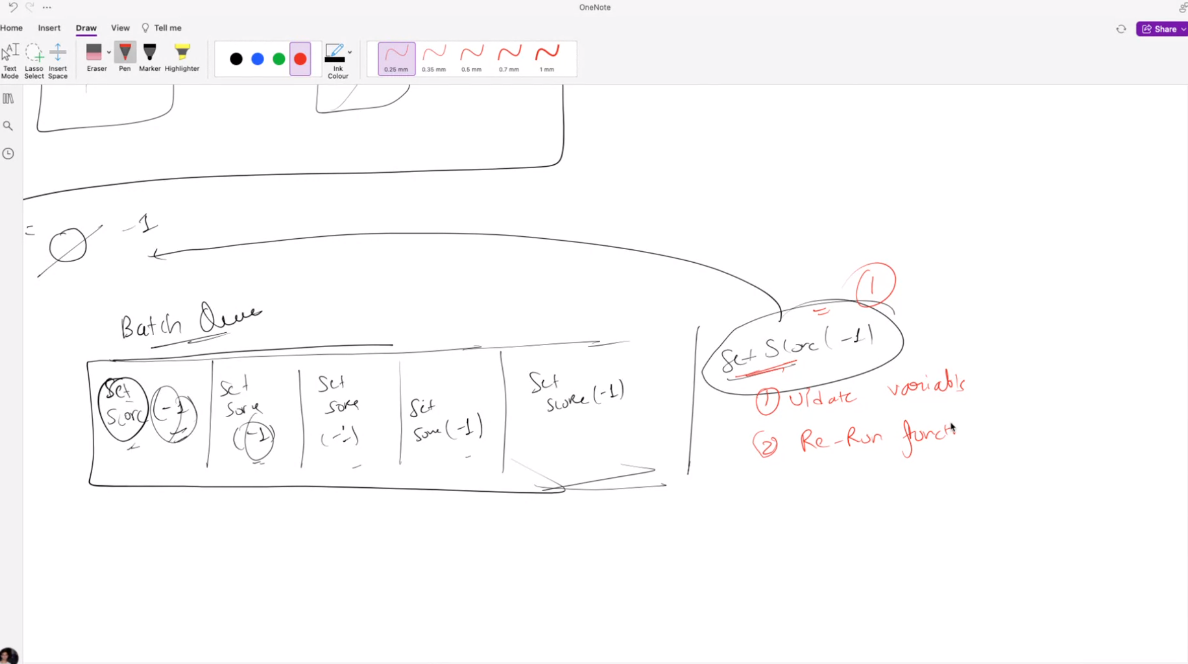 OneNote
Home Insert Draw View Tell me
Share
Text Mode
Lasso Select
Insert Space
Eraser
Pen
Marker
Highlighter
Ink Colour
0.25 mm
0.35 mm
0.5 mm
0.7 mm
1 mm
= 0 -1
1
Batch
Set Score (-1)
Set Score (-1)
Set Score (-1)
Set Score (-1)
Set Score (-1)
Set Score (-1)
1 Update variable
2 Re-Run funct